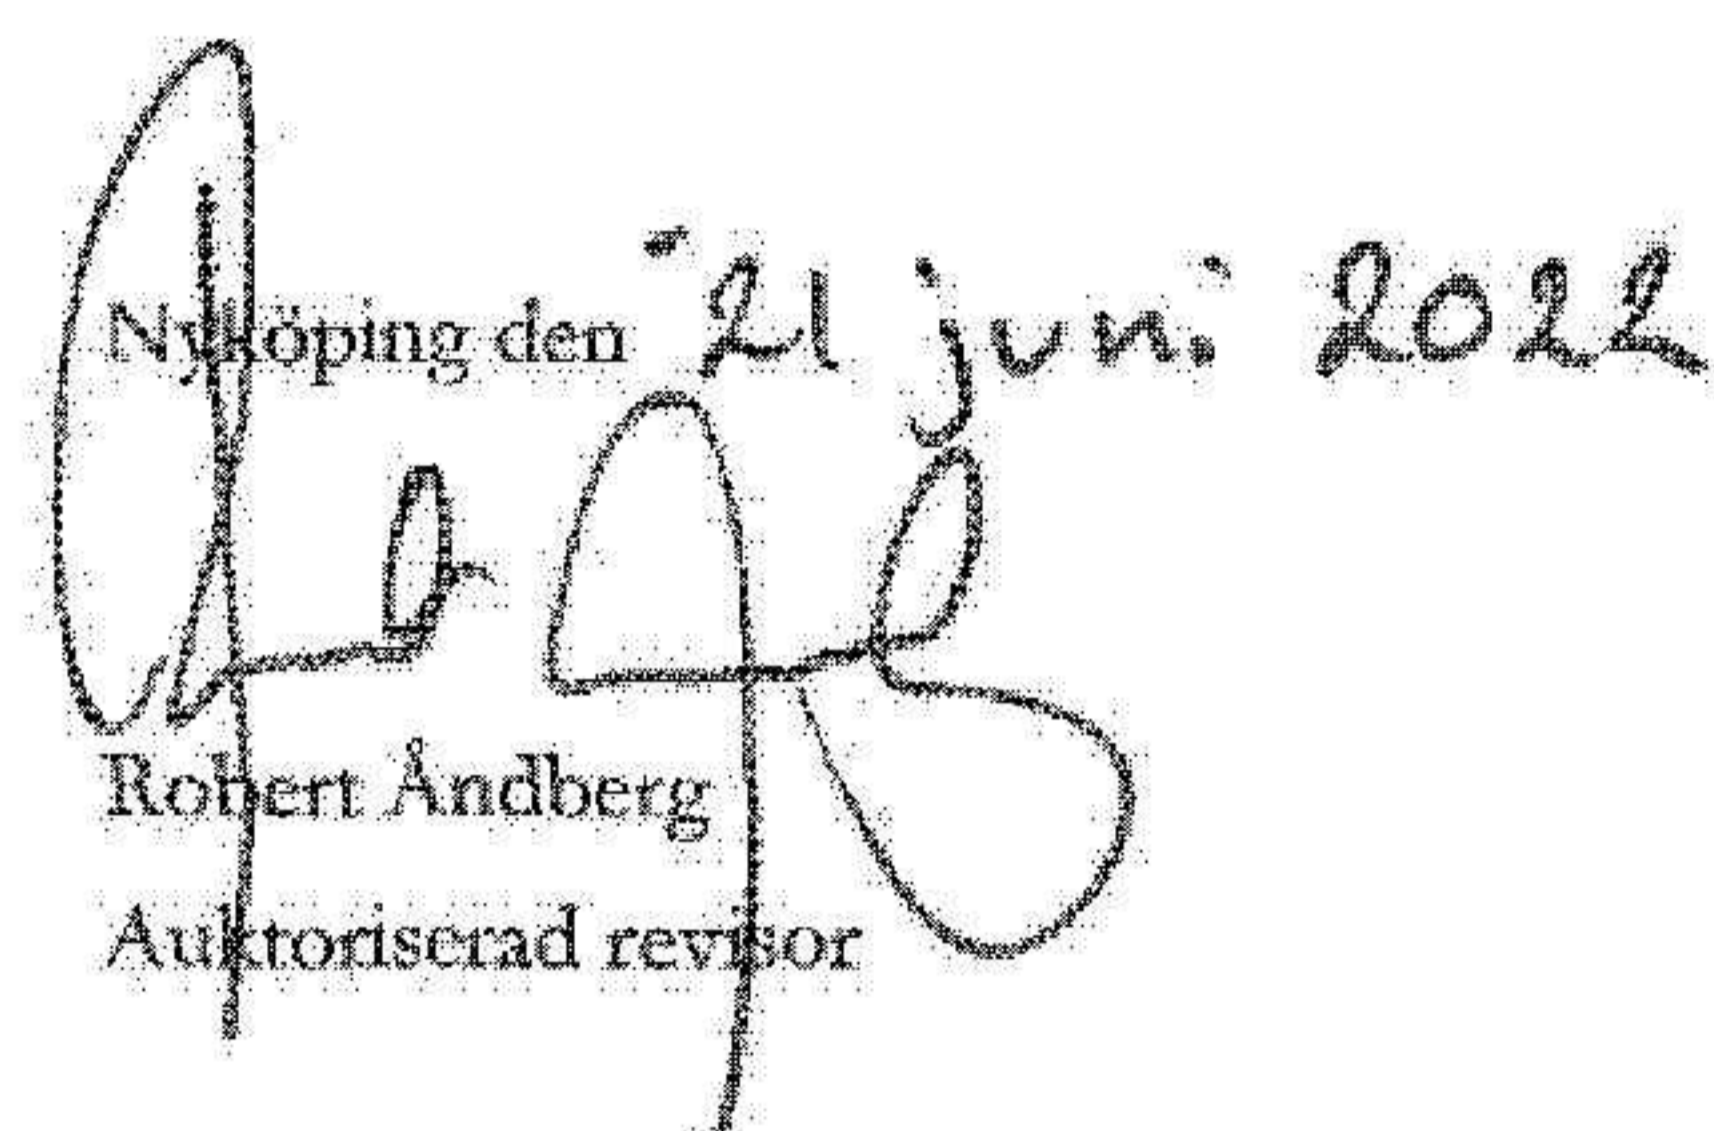 Nyköping den 21 juni 2022
Robert Åndberg
Auktoriserad revisor